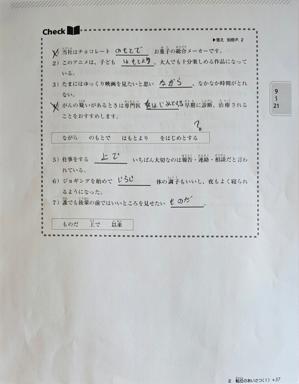 Check
▶答え 別冊P. 2
1）当社はチョコレート のもとで お菓子の総合メーカーです。
2）このアニメは、子ども はもとより 、大人でも十分楽しめる作品になって
いる。
3）たまにはゆっくり映画を見たいと思い ながら 、なかなか時間がとれ
ない。
4）がんの疑いがあるときは専門医 をはじめとする 早期に診断、治療される
ことをおすすめします。
ながら のもとで はもとより をはじめとする
5）仕事をする 上で いちばん大切なのは報告・連絡・相談だと言
われている。
6）ジョギングを始めて 体の調子もいいし、夜もよく寝られ
るようになった。
7）誰でも後輩の前ではいいところを見せたい ものだ 。
ものだ 上で 以来
9
1
21